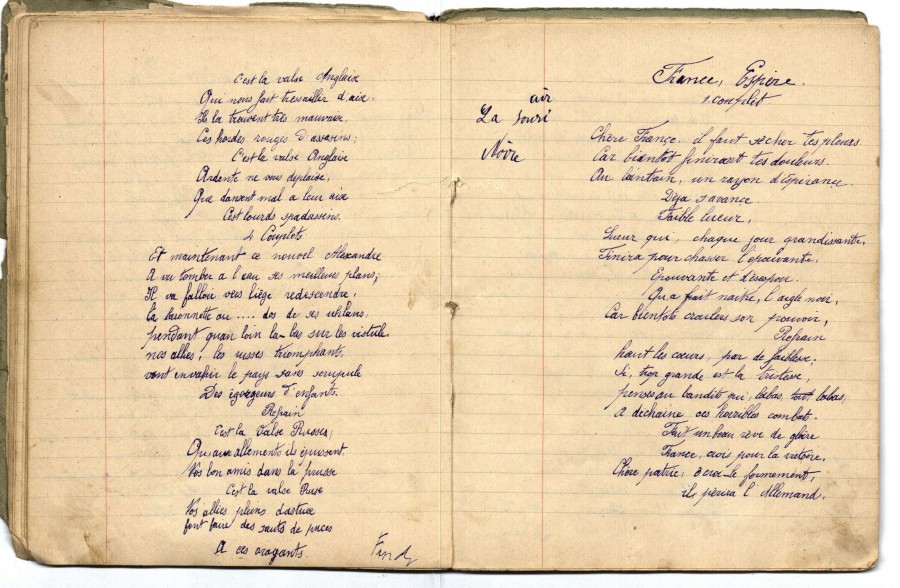 C'est la valse Anglaise
Qui nous fait travailler d'aix.
Ils la trouvent très mauvaise,
Ces hordes rouges d'assasins;
C'est la valse Anglaise
Ardente ne vous deplaise,
Que dansent mal a leur aix
C'est lourds spadassins.
4 Couplets
Et maintenant ce nouvel Alexandre
A vu tomber a l'eau ses meilleurs plans;
Il va falloir vers liège redescendre,
la baionnette au .... dos de ses uhlans,
pendant qu'au loin la-bas sur les vistule
nos allies, les russes triomphants,
vont envahir le pays sans scrupule
Des égorgeurs d'enfants.
Refrain
C'est la Valse Russes,
Qu'aux allements ils
Nos bon amis dans la prusse
C'est la valse Ruse
Nos allies pleins d'astuce
font faire des sauts de puces
A ces arogants.
Find
France, Espère.
1 Couplet
air
La souri
Noire
Chère France, il faut sécher tes pleurs.
Car bientot finiront tes douleurs.
Au lointain, un rayon d'Espérance
Déja s'avance
Faible lueur,
Lueur qui, chaque jour grandissante,
Finira pour chasser l'épouvante,
Epouvante et désespoir
Qu'a fait naitre, l'aigle noir,
Car bientots croulera son pouvoir,
Refrain
haut les cœurs, pas de faiblesse;
Si, trop grande est ta tristesse,
penses au bandit qui, labas, tout labas,
A dechaine ces horribles combats.
Fait un beau rève de gloire
France, crois pour la victoire,
Chère patrie, crois-le fermement,
ils périra l'Allemand.